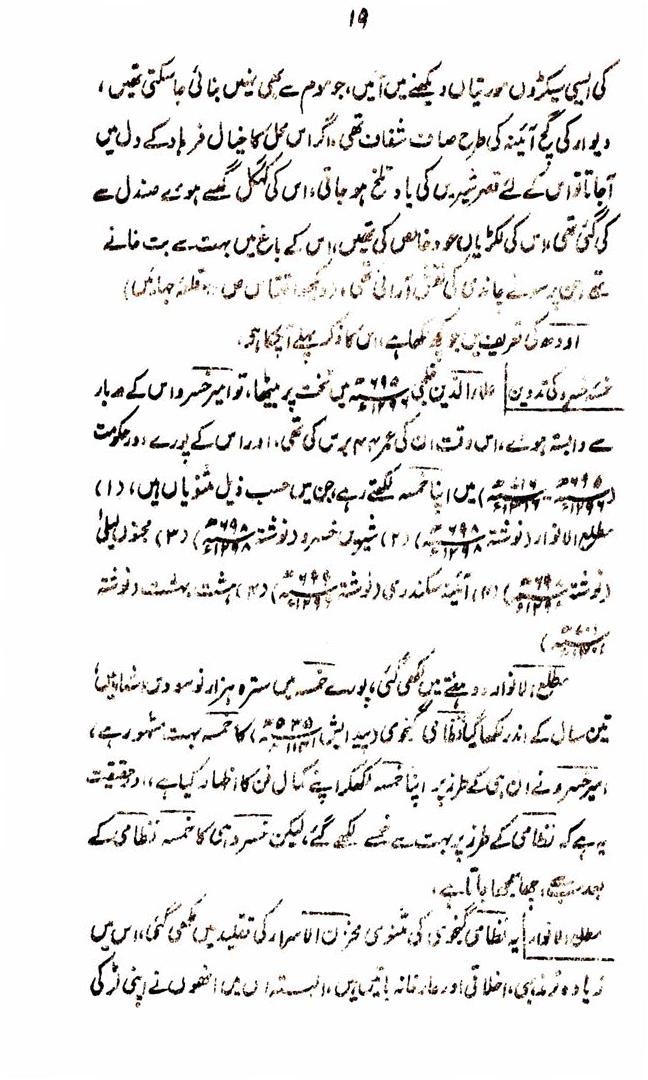 ۱۹
کی ایسی سیکڑوں مورتیاں دیکھنے میں آئیں، جو موم سے بھی نہیں بنائی جا سکتی تھیں،
دیوار کی گچ آئینہ کی طرح صاف شفاف تھی، اگر اس محل کا خیال فرہاد کے دل میں
آجاتا تو اس کے لئے قصر شیریں کی یاد تلخ ہو جاتی، اس کی کہگل گھسے ہوئے صندل سے
کی گئی تھی، اس کی لکڑیاں عود خالص کی تھیں، اس کے باغ میں بہت سے بت خانے
تھے جن پر سونے چاندی کی نقش آرائی تھی، (دیکھو اقتباس ص قلعہ جھائیں)
اودھ کی تعریف میں جو کچھ لکھا ہے، اس کا ذکر پہلے آچکا ہو،
خمسہ خسرو کی تدوین علاء الدین خلجی ۶۹۵ھ ۱۲۹۶ء میں تخت پر بیٹھا، تو امیر خسرو اس کے دربار
سے وابستہ ہوئے، اس وقت ان کی عمر ۴۴ برس کی تھی، اور اس کے پورے دور حکومت
(۶۹۵ھ ۱۲۹۶ء - ۷۱۶ھ ۱۳۱۶ء) میں اپنا خمسہ لکھتے رہے، جن میں حسب ذیل مثنویاں ہیں، (۱)
مطلع الانوار (نوشتہ ۶۹۸ھ ۱۲۹۸ء) (۲) شیریں خسرو (نوشتہ ۶۹۸ھ ۱۲۹۸ء) (۳) مجنوں لیلیٰ
(نوشتہ ۶۹۸ھ) (۴) آئینۂ سکندری (نوشتہ ۶۹۹ھ ۱۲۹۹ء) (۴) ہشت بہشت (نوشتہ
مطلع الانوار دو ہفتے میں لکھی گئی، پورے خمسہ میں سترہ ہزار نو سو دس اشعار ہیں
تین سال کے اندر لکھا گیا نظامی گنجوی (پیدایش ۵۳۵ھ ۱۱۴۱ء) کا خمسہ بہت مشہور ہے،
امیر خسرو نے ان ہی کے طرز پر اپنا خمسہ لکھکر اپنے کمال فن کا اظہار کیا ہے، درحقیقت
یہ ہے کہ نظامی کے طرز پر بہت سے خمسے لکھے گئے، لیکن خسرو ہی کا خمسہ نظامی کے
بعد سب سے اچھا سمجھا جاتا ہے،
مطلع الانوار یہ نظامی گنجوی کی مثنوی مخزن الاسرار کی تقلید میں لکھی گئی، اس میں
زیادہ تر مذہبی، اخلاقی اور عارفانہ باتیں ہیں، البتہ اس میں انھوں نے اپنی لڑکی